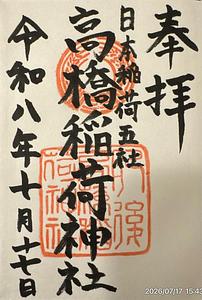 奉拝
日本稲荷五社
高橋稲荷神社
令和八年十月十七日
2026/07/17 15:43